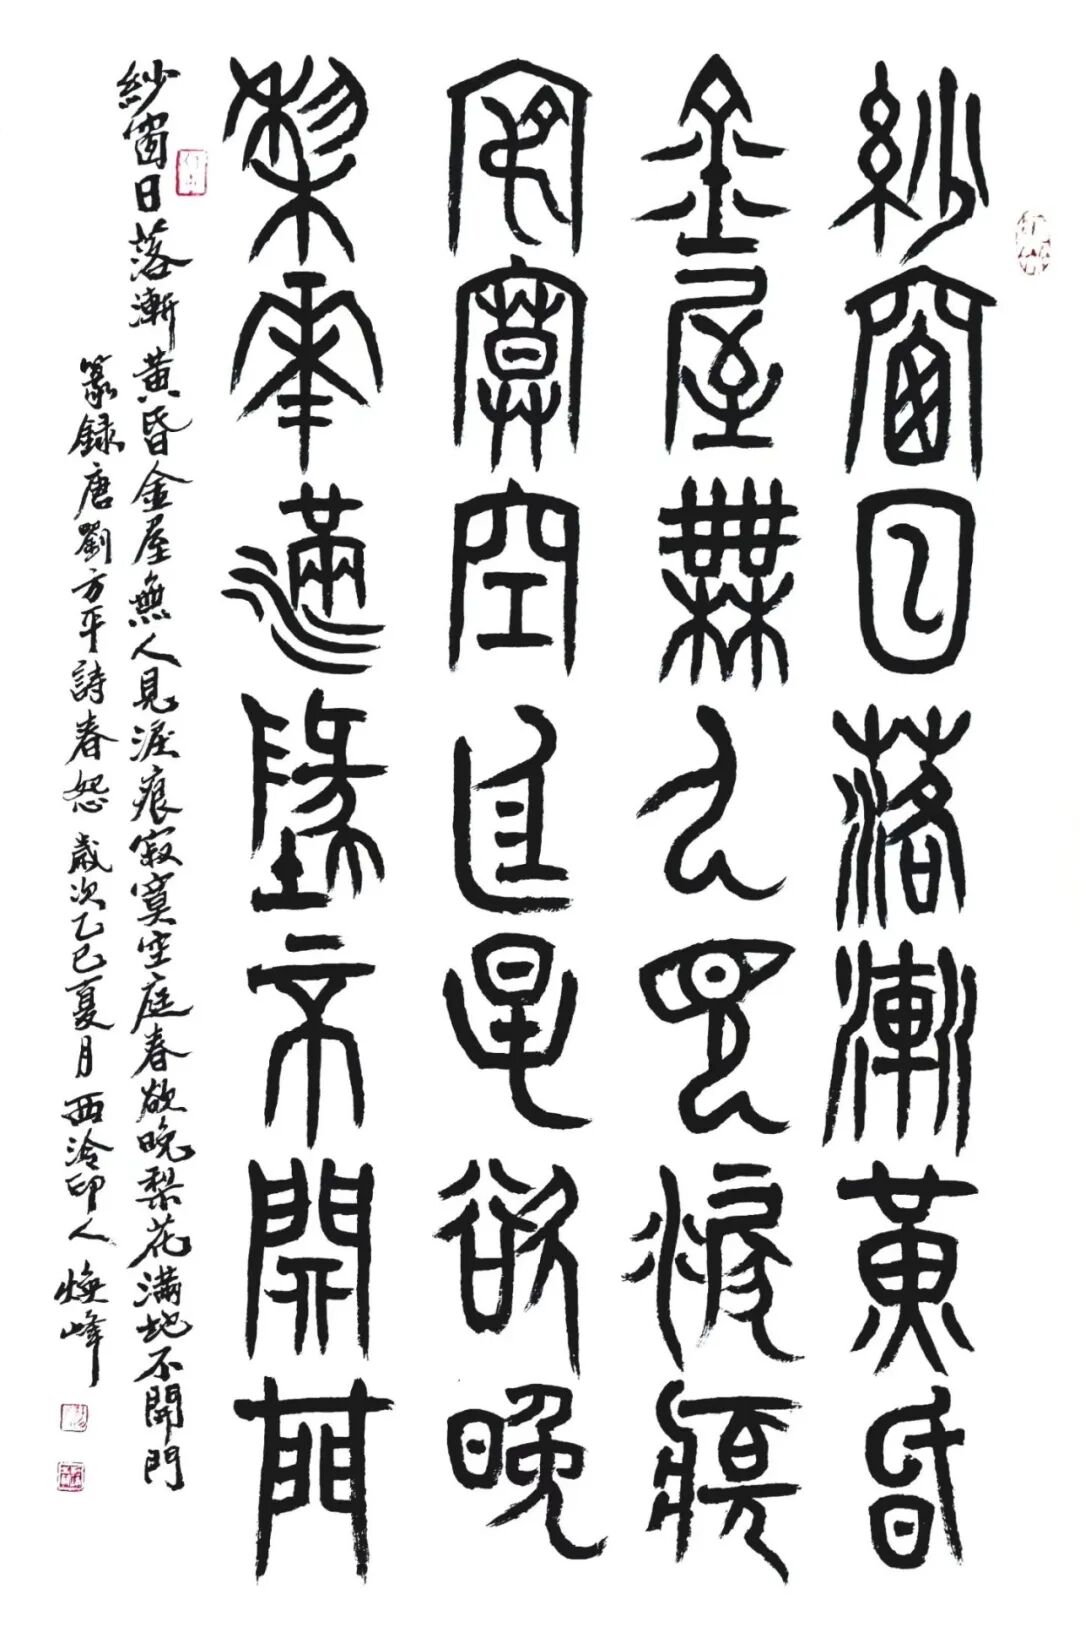 紗窗日落漸黃昏
金屋無人見淚痕
寂寞空庭春欲晚
梨花滿地不開門
紗窗日落漸黃昏金屋無人見淚痕寂寞空庭春欲晚梨花滿地不開門
篆錄唐劉方平詩春怨歲次乙巳夏月西泠印人煥峰